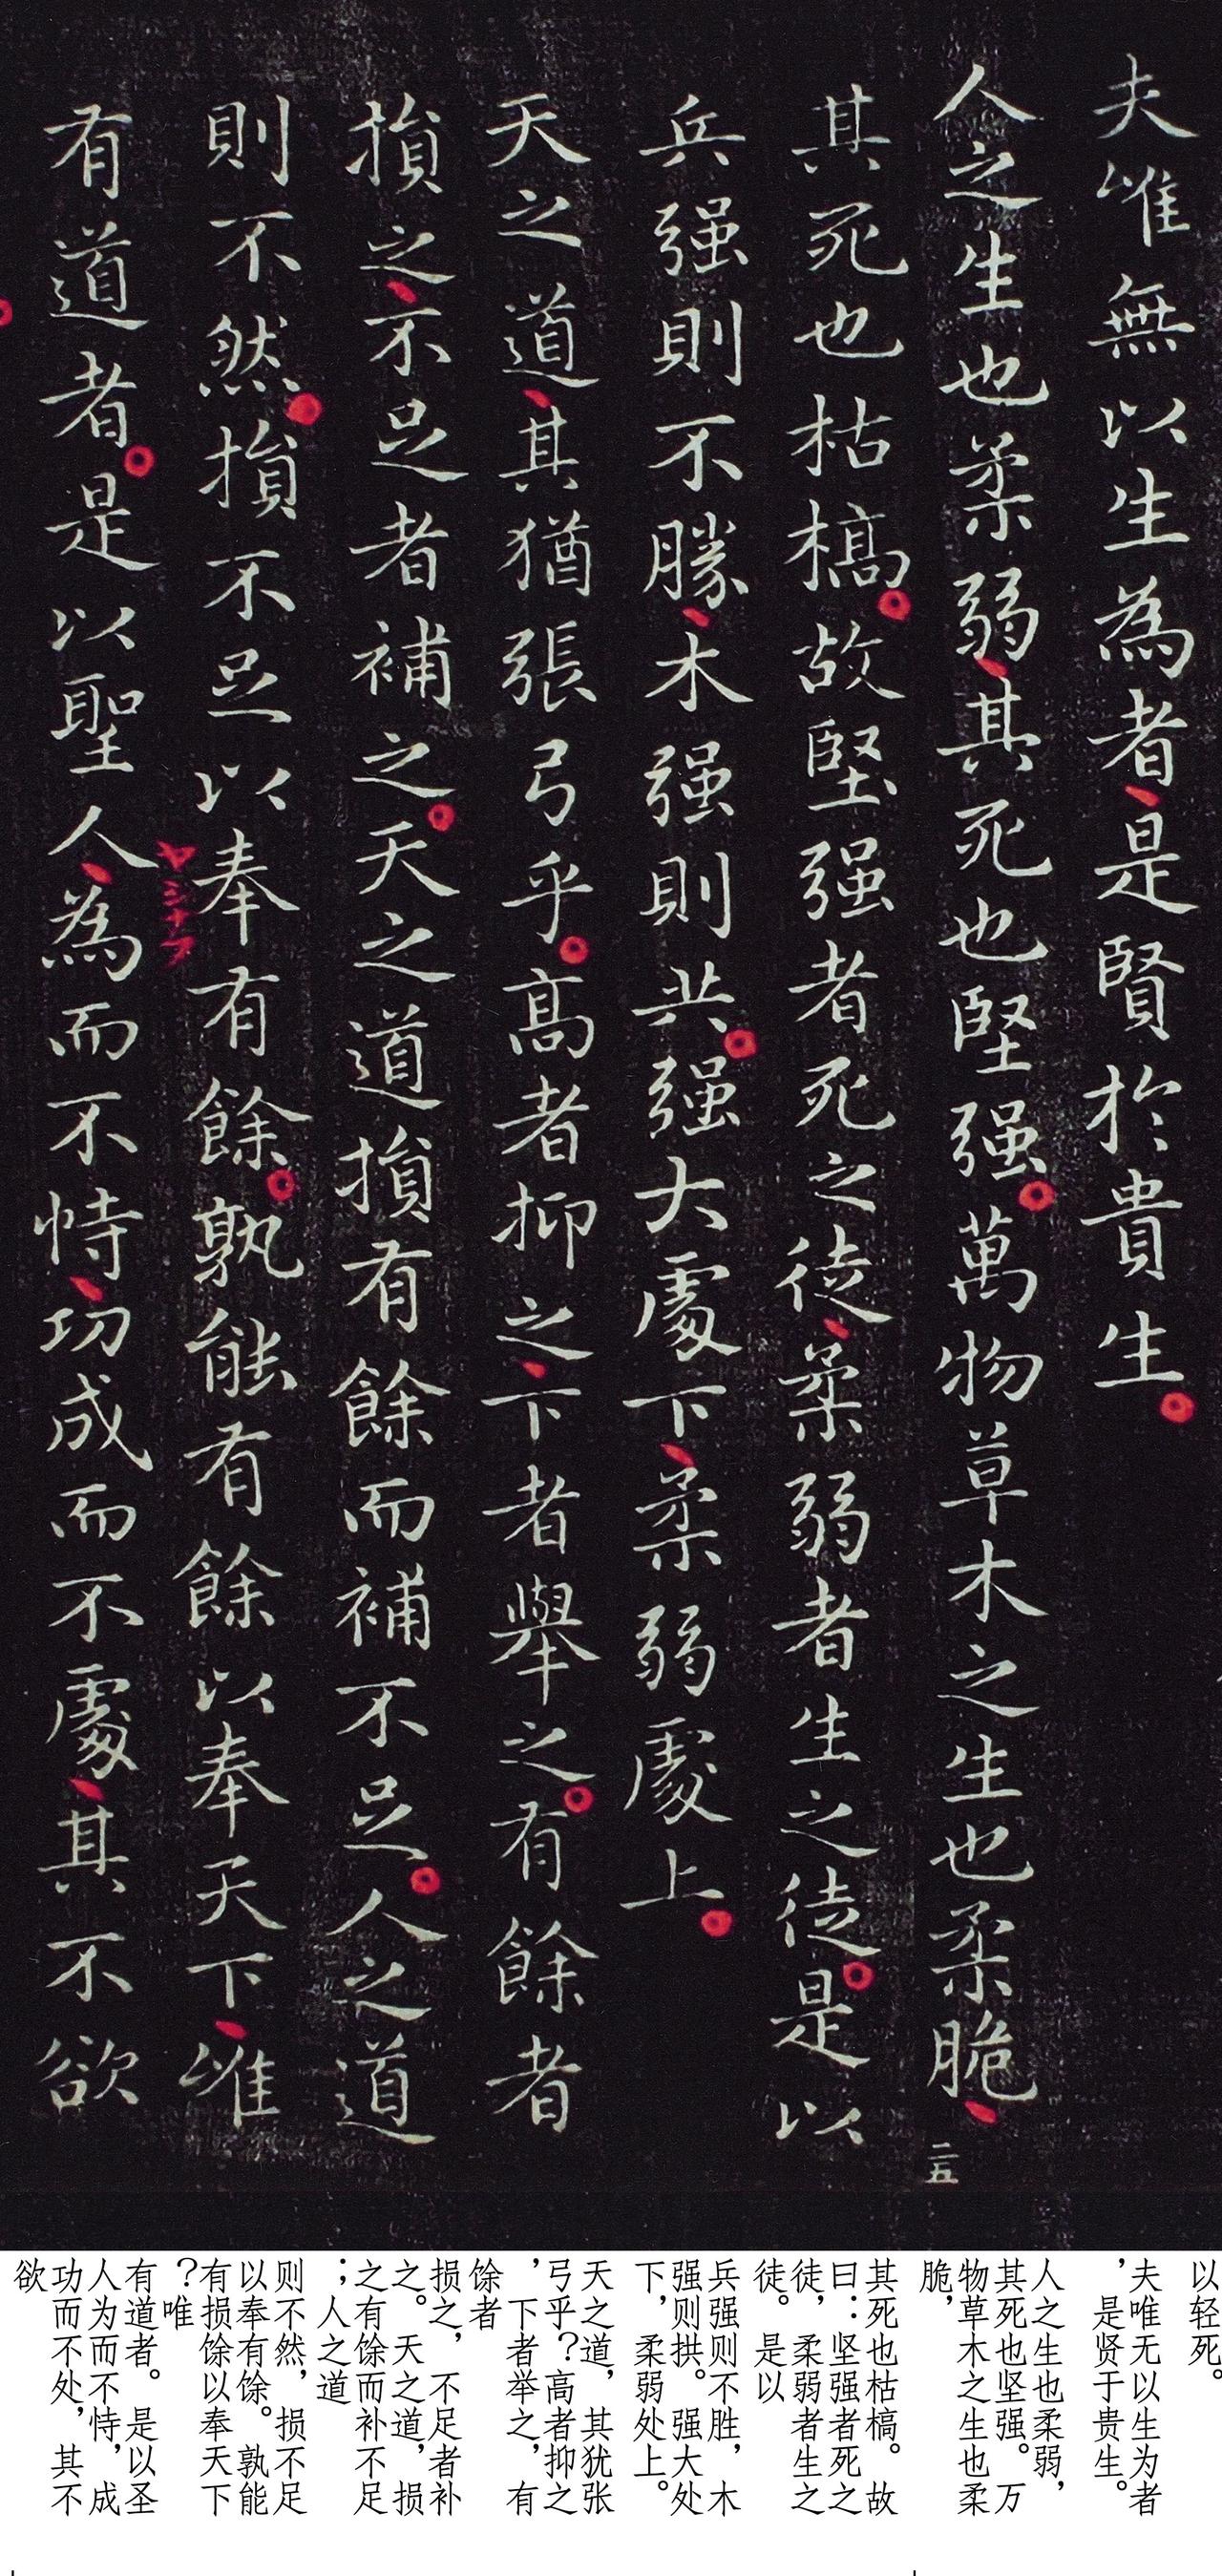 夫唯無以生為者是賢於貴生
人之生也柔弱其死也堅强萬物草木之生也柔脆
二五
其死也枯槁故堅强者死之徒柔弱者生之徒是以
兵强則不勝木强則共强大處下柔弱處上
天之道其猶張弓乎高者抑之下者舉之有餘者
損之不足者補之天之道損有餘而補不足人之道
則不然損不足以奉有餘孰能有餘以奉天下唯
有道者是以聖人為而不恃功成而不處其不欲
以轻死。
夫唯无以生为者
，是贤于贵生。
人之生也柔弱，
其死也坚强。万
物草木之生也柔
脆，
其死也枯槁。故
曰：坚强者死之
徒，柔弱者生之
徒。是以
兵强则不胜，木
强则拱。强大处
下，柔弱处上。
天之道，其犹张
弓乎？高者抑之
，下者举之，有
馀者
损之，不足者补
之。天之道，损
之有馀而补不足
；人之道
则不然，损不足
以奉有馀。孰能
有损馀以奉天下
？唯
有道者。是以圣
人为而不恃，成
功而不处，其不
欲